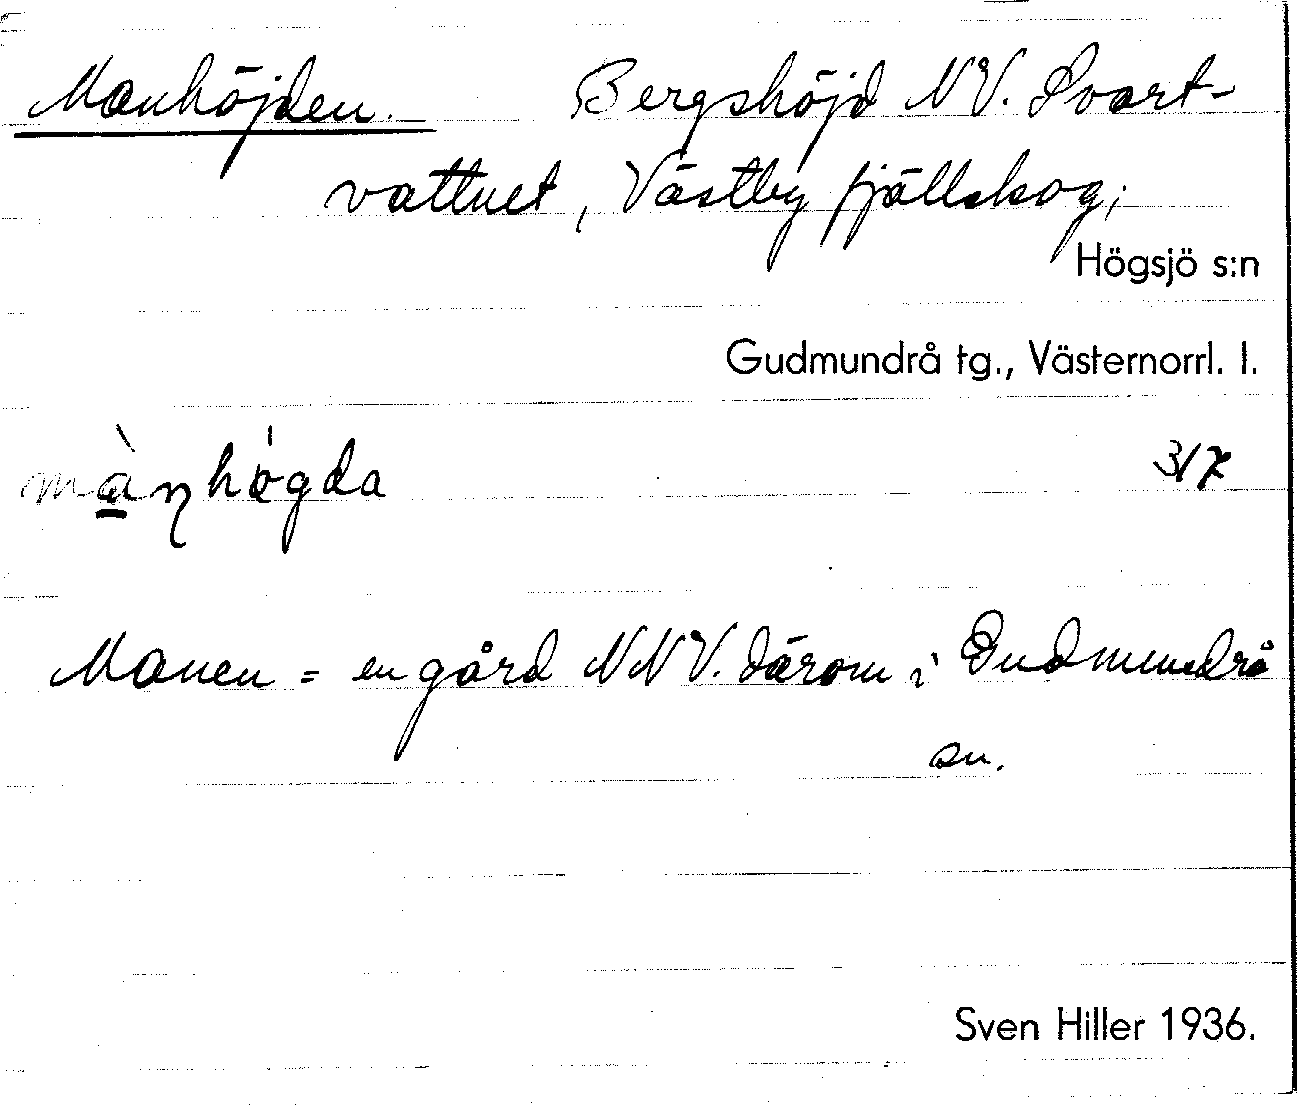 Manhöjden. Bergshöjd NV. Svart-
vattnet, Västby fjällskog;
Högsjö s:n
Gudmundrå tg., Västernorrl. l.
mànhögda 317
Manen = en gård NNV. därom i Gudmundrå
sn.
Sven Hiller 1936.